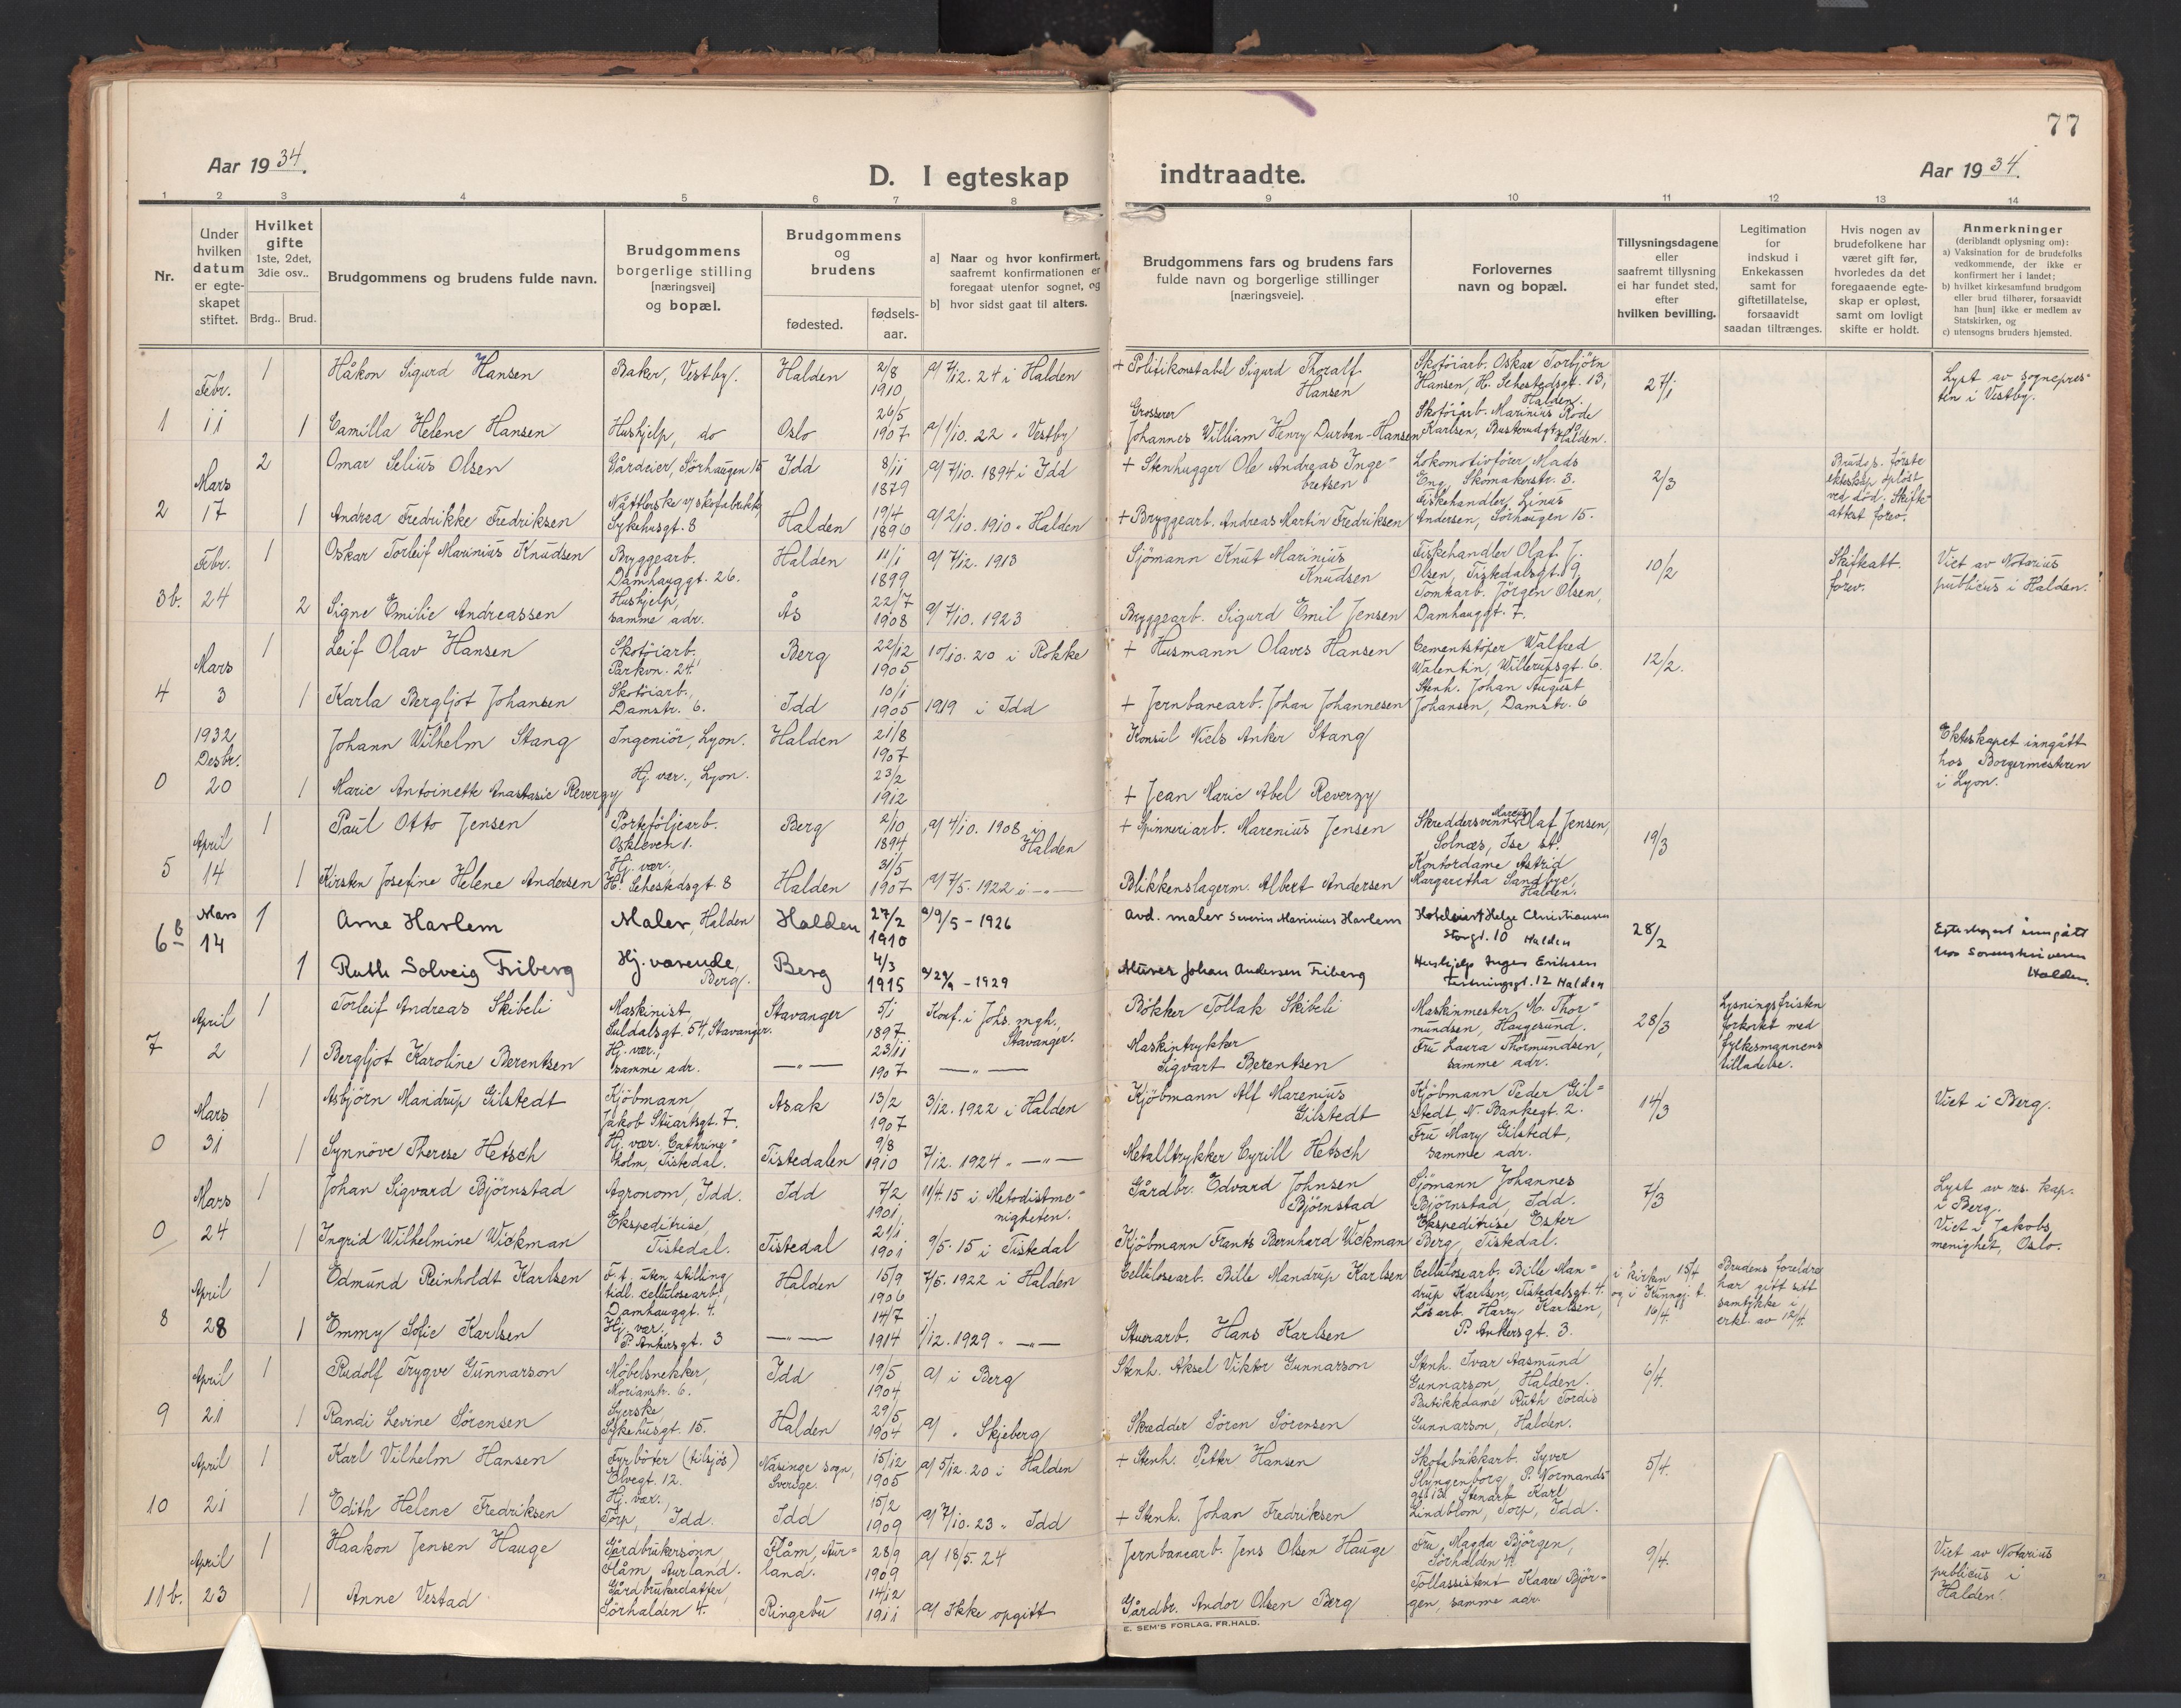 77
Aar 1934.
D. I egteskap indtraadte.
Aar 1934.
1 2 3 4 5 6 7 8 9 10 11 12 13 14
Nr.
Under hvilken datum er egteskapet stiftet.
Hvilket gifte 1ste, 2det, 3die osv..
Brdg.. Brud.
Brudgommens og brudens fulde navn.
Brudgommens borgerlige stilling [næringsvei] og bopæl.
Brudgommens og brudens
fødested.
fødsels-aar.
a] Naar og hvor konfirmert, saafremt konfirmationen er foregaat utenfor sognet, og
b] hvor sidst gaat til alters.
Brudgommens fars og brudens fars fulde navn og borgerlige stillinger [næringsveie].
Forlovernes navn og bopæl.
Tillysningsdagene eller saafremt tillysning ei har fundet sted, efter hvilken bevilling.
Legitimation for indskud i Enkekassen samt for giftetillatelse, forsaavidt saadan tiltrænges.
Hvis nogen av brudefolkene har været gift før, hvorledes da det foregaaende egteskap er opløst, samt om lovligt skifte er holdt.
Anmerkninger (deriblandt oplysning om):
a) Vaksination for de brudefolks vedkommende, der ikke er konfirmert her i landet;
b) hvilket kirkesamfund brudgom eller brud tilhører, forsaavidt han [hun] ikke er medlem av Statskirken, og
c) utensogns bruders hjemsted.
1 Febr. 11
1 Håkon Sigurd Hansen Baker, Vestby. Halden 2/8 1910 a) 7/12. 24 i Halden + Politikonstabel Sigurd Thoralf Hansen Skotøiarb. Oskar Torbjörn Hansen, H. Sehestedsgt. 13, Halden. 27/1 Lyst av sognepresten i Vestby.
1 Camilla Helene Hansen Hushjelp, do Oslo 26/5 1907 a) 1/10. 22 " Vestby Grosserer Johannes William Henry Durban-Hansen Skotöiarb. Marinius Rode Karlsen, Busterudgt. 19, Halden.
2 Mars 17
2 Omar Selius Olsen Gårdeier, Sörhaugen 15 Idd 8/11 1879 a) 7/10. 1894 i Idd + Stenhugger Ole Andreas Ingebretsen Lokomotivfører Mads Eng, Skomakerstr. 3. 2/3 Brudg. første ekteskap opløst ved död. Skifteattest forev.
1 Andrea Fredrikke Fredriksen Nåtlerske v/ skofabrikk, Sykehusgt. 8 Halden 19/4 1896 a) 2/10. 1910 " Halden + Bryggearb. Andreas Martin Fredriksen Fiskehandler Linus Andersen, Sörhaugen 15.
3b. Febr. 24
1 Oskar Torleif Marinius Knudsen Bryggearb. Damhauggt. 26. Halden 11/1 1899 a) 7/12. 1913 Sjömann Knut Marinius Knudsen Fiskehandler Olaf J. Olsen, Tistedalsgt. 9, 10/2 Skifteatt. forev. Viet av Notarius publicus i Halden.
2 Signe Emilie Andreassen Hushjelp, samme adr. Ås 22/7 1908 a) 7/10. 1923 Bryggearb. Sigurd Emil Jensen Tomtarb. Jörgen Olsen, Damhauggt. 7.
4 Mars 3
1 Leif Olav Hansen Skotöiarb. Parkvn. 24. Berg 22/12 1905 10/10. 20 i Rokke + Husmann Olaves Hansen Cementstöper Walfred Walentin, Willerupsgt. 6. 12/2.
1 Karla Bergljot Johansen Skotöiarb., Damstr. 6. Idd 10/1 1905 1919 i Idd + Jernbanearb. Johan Johannesen Stenh. Johan August Johansen, Damstr. 6
0 1932 Desbr. 20
Johann Wilhelm Stang Ingeniör, Lyon. Halden 21/8 1907 Konsul Niels Anker Stang Ekteskapet inngått hos Borgermesteren i Lyon.
1 Marie Antoinette Anastasie Reverzy Hj. vær., Lyon. 23/2 1912 + Jean Marie Abel Reverzy
5 April 14
1 Paul Otto Jensen Porteföljearb. Oskleven 1. Berg 2/10 1894 a) 4/10. 1908 i Halden + Spinneriarb. Marenius Jensen Skreddersvenn Marcus Olaf Jensen, Solnæs, Ise st. 19/3
1 Kirsten Josefine Helene Andersen Hj. vær. H. Sehestedsgt. 8 Halden 31/5 1907 a) 7/5. 1922 i —"— Blikkenslagerm. Albert Andersen Kontordame Astrid Margaretha Sandbye, Halden.
6b Mars 14
1 Arne Harlem Maler, Halden Halden 27/2 1910 a) 9/5 - 1926 Avd. maler Severin Marinius Harlem Hotelvert Helge Christiansen Storgt. 10 Halden 28/2 Egteskapet inngått hos Sorenskriveren Halden.
1 Ruth Solveig Friberg Hj. værende, Berg. Berg 4/3 1915 a) 29/9 - 1929 Murer Johan Andersen Friberg Hushjelp Inger Eriksen Festningsgt. 12 Halden
7 April 2
1 Torleif Andreas Skibeli Maskinist, Suldalsgt. 54, Stavanger. Stavanger 5/1 1897 Konf. i Johs. mgh., Stavanger. Bökker Tollak Skibeli Maskinmester M. Thormundsen, Haugesund. 28/3 Lysningsfristen forkortet med fylkesmannens tilladelse.
1 Bergljot Karoline Berentsen Hj. vær., samme adr. —"— 23/11 1907 —"— Maskintrykker Sigvart Berentsen Fru Laura Thormundsen, samme adr.
0 Mars 31
1 Asbjörn Mandrup Gilstedt Kjöbmann Jakob Stuartsgt. 7. Asak 13/2 1907 3/12. 1922 i Halden Kjöbmann Alf Marenius Gilstedt Kjöbmann Peder Gilstedt, N. Bankegt. 2. 14/3 Viet i Berg.
1 Synnöve Therese Hetsch Hj. vær. Cathrineholm, Tistedal. Tistedalen 9/8 1910 7/12. 1924 " —"— Metalltrykker Cyrill Hetsch Fru Mary Gilstedt, samme adr.
0 Mars 24
1 Johan Sigvard Björnstad Agronom, Idd. Idd 7/2 1901 11/4. 15 i Metodistmenigheten. Gårdbr. Edvard Johnsen Björnstad Sjömann Johannes Björnstad, Idd. 7/3 Lyst av res. kap. i Berg. Viet i Jakobs menighet, Oslo.
1 Ingrid Wilhelmine Wickman Ekspeditrise, Tistedal. Tistedal 21/1 1901 9/5. 15 i Tistedal Kjöbmann Frants Bernhard Wickman Ekspeditrise Ester Berg, Tistedal.
8 April 28
1 Edmund Reinholdt Karlsen F. t. uten stilling tidl. cellulosearb., Damhauggt. 4. Halden 15/9 1906 7/5. 1922 i Halden Cellulosearb. Bille Mandrup Karlsen Cellulosearb. Bille Mandrup Karlsen, Tistedalsgt. 4. i kirken 15/4 og i Kunngj. t. 16/4. Brudens foreldre har gitt sitt samtykke i erkl. av 12/4.
1 Emmy Sofie Karlsen Hj. vær., P. Ankersgt. 3 —"— 14/7 1914 1/12. 1929 " —"— Stuerarb. Hans Karlsen Lösarb. Harry Karlsen, P. Ankersgt. 3.
9 April 21
1 Rudolf Trygve Gunnarson Möbelsnekker, Morianstr. 6. Idd 19/5 1904 a) i Berg Stenh. Aksel Viktor Gunnarson Stenh. Ivar Aasmund Gunnarson, Halden. 6/4.
1 Randi Levine Sörensen Syerske, Sykehusgt. 15. Halden 29/5 1904 a) " Skjeberg Skredder Sören Sörensen Butikkdame Ruth Tordis Gunnarson, Halden.
10 April 21
1 Karl Vilhelm Hansen Fyrböter (tilsjös) Elvegt. 12. Näsinge sogn, Sverige. 15/12 1905 a) 5/12. 20 i Halden + Stenh. Petter Hansen Skofabrikkarb. Syver Slyngenborg, P. Normandsgt. 13. 5/4.
1 Edith Helene Fredriksen Hj. vær., Torp, Idd. Idd 15/2 1909 a) 7/10. 23 " Idd + Stenh. Johan Fredriksen Stenarb. Karl Lindblom, Torp, Idd.
11b. April 23
1 Haakon Jensen Hauge Gårdbrukersönn, Flåm, Aurland. Flåm, Aurland. 28/9 1909 a) 18/5. 24 Jernbanearb. Jens Olsen Hauge Fru Magda Björgen, Sörhalden 4. 9/4. Viet av Notarius publicus i Halden.
1 Anne Vestad Gårdbrukerdatter, Sörhalden 4. Ringebu 14/12 1911 a) Ikke opgitt Gårdbr. Andor Olsen Berg Tollassistent Kaare Björgen, samme adr.
E. SEM'S FORLAG, FR.HALD.